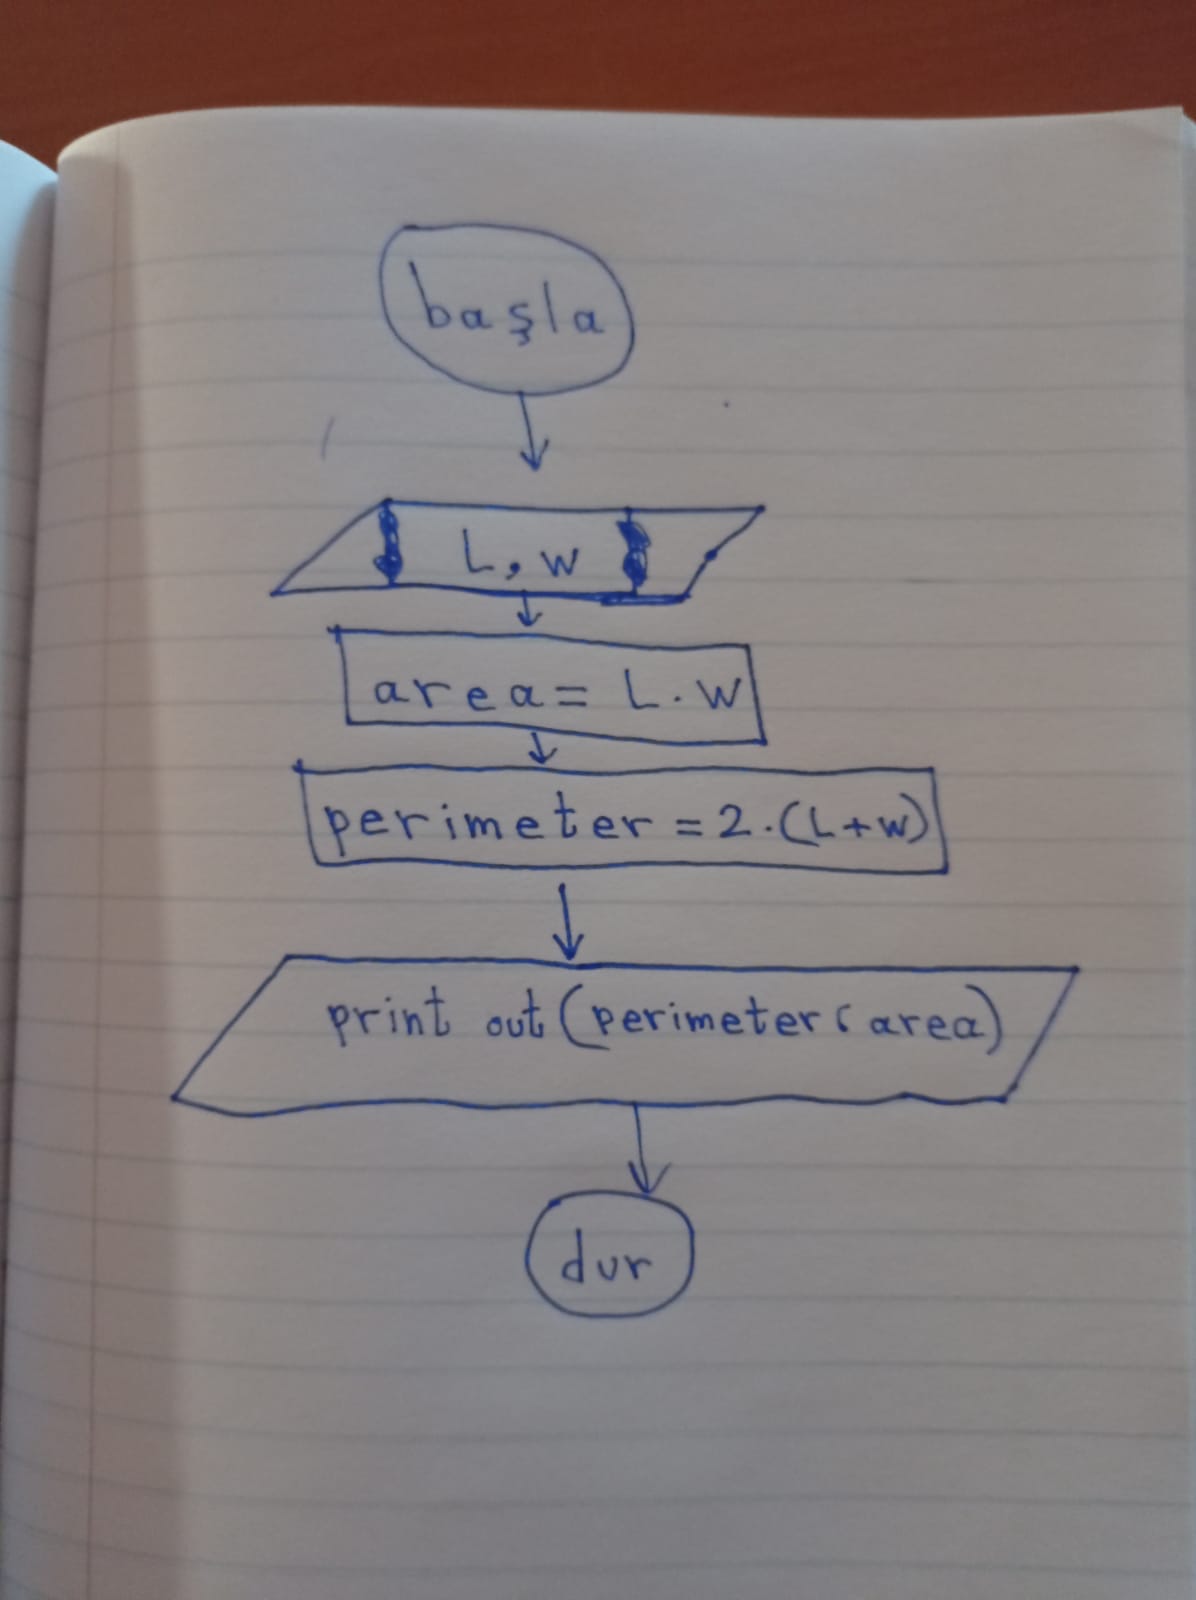 başla
L, w
area = L . w
perimeter = 2 . (L+w)
print out (perimeter, area)
dur